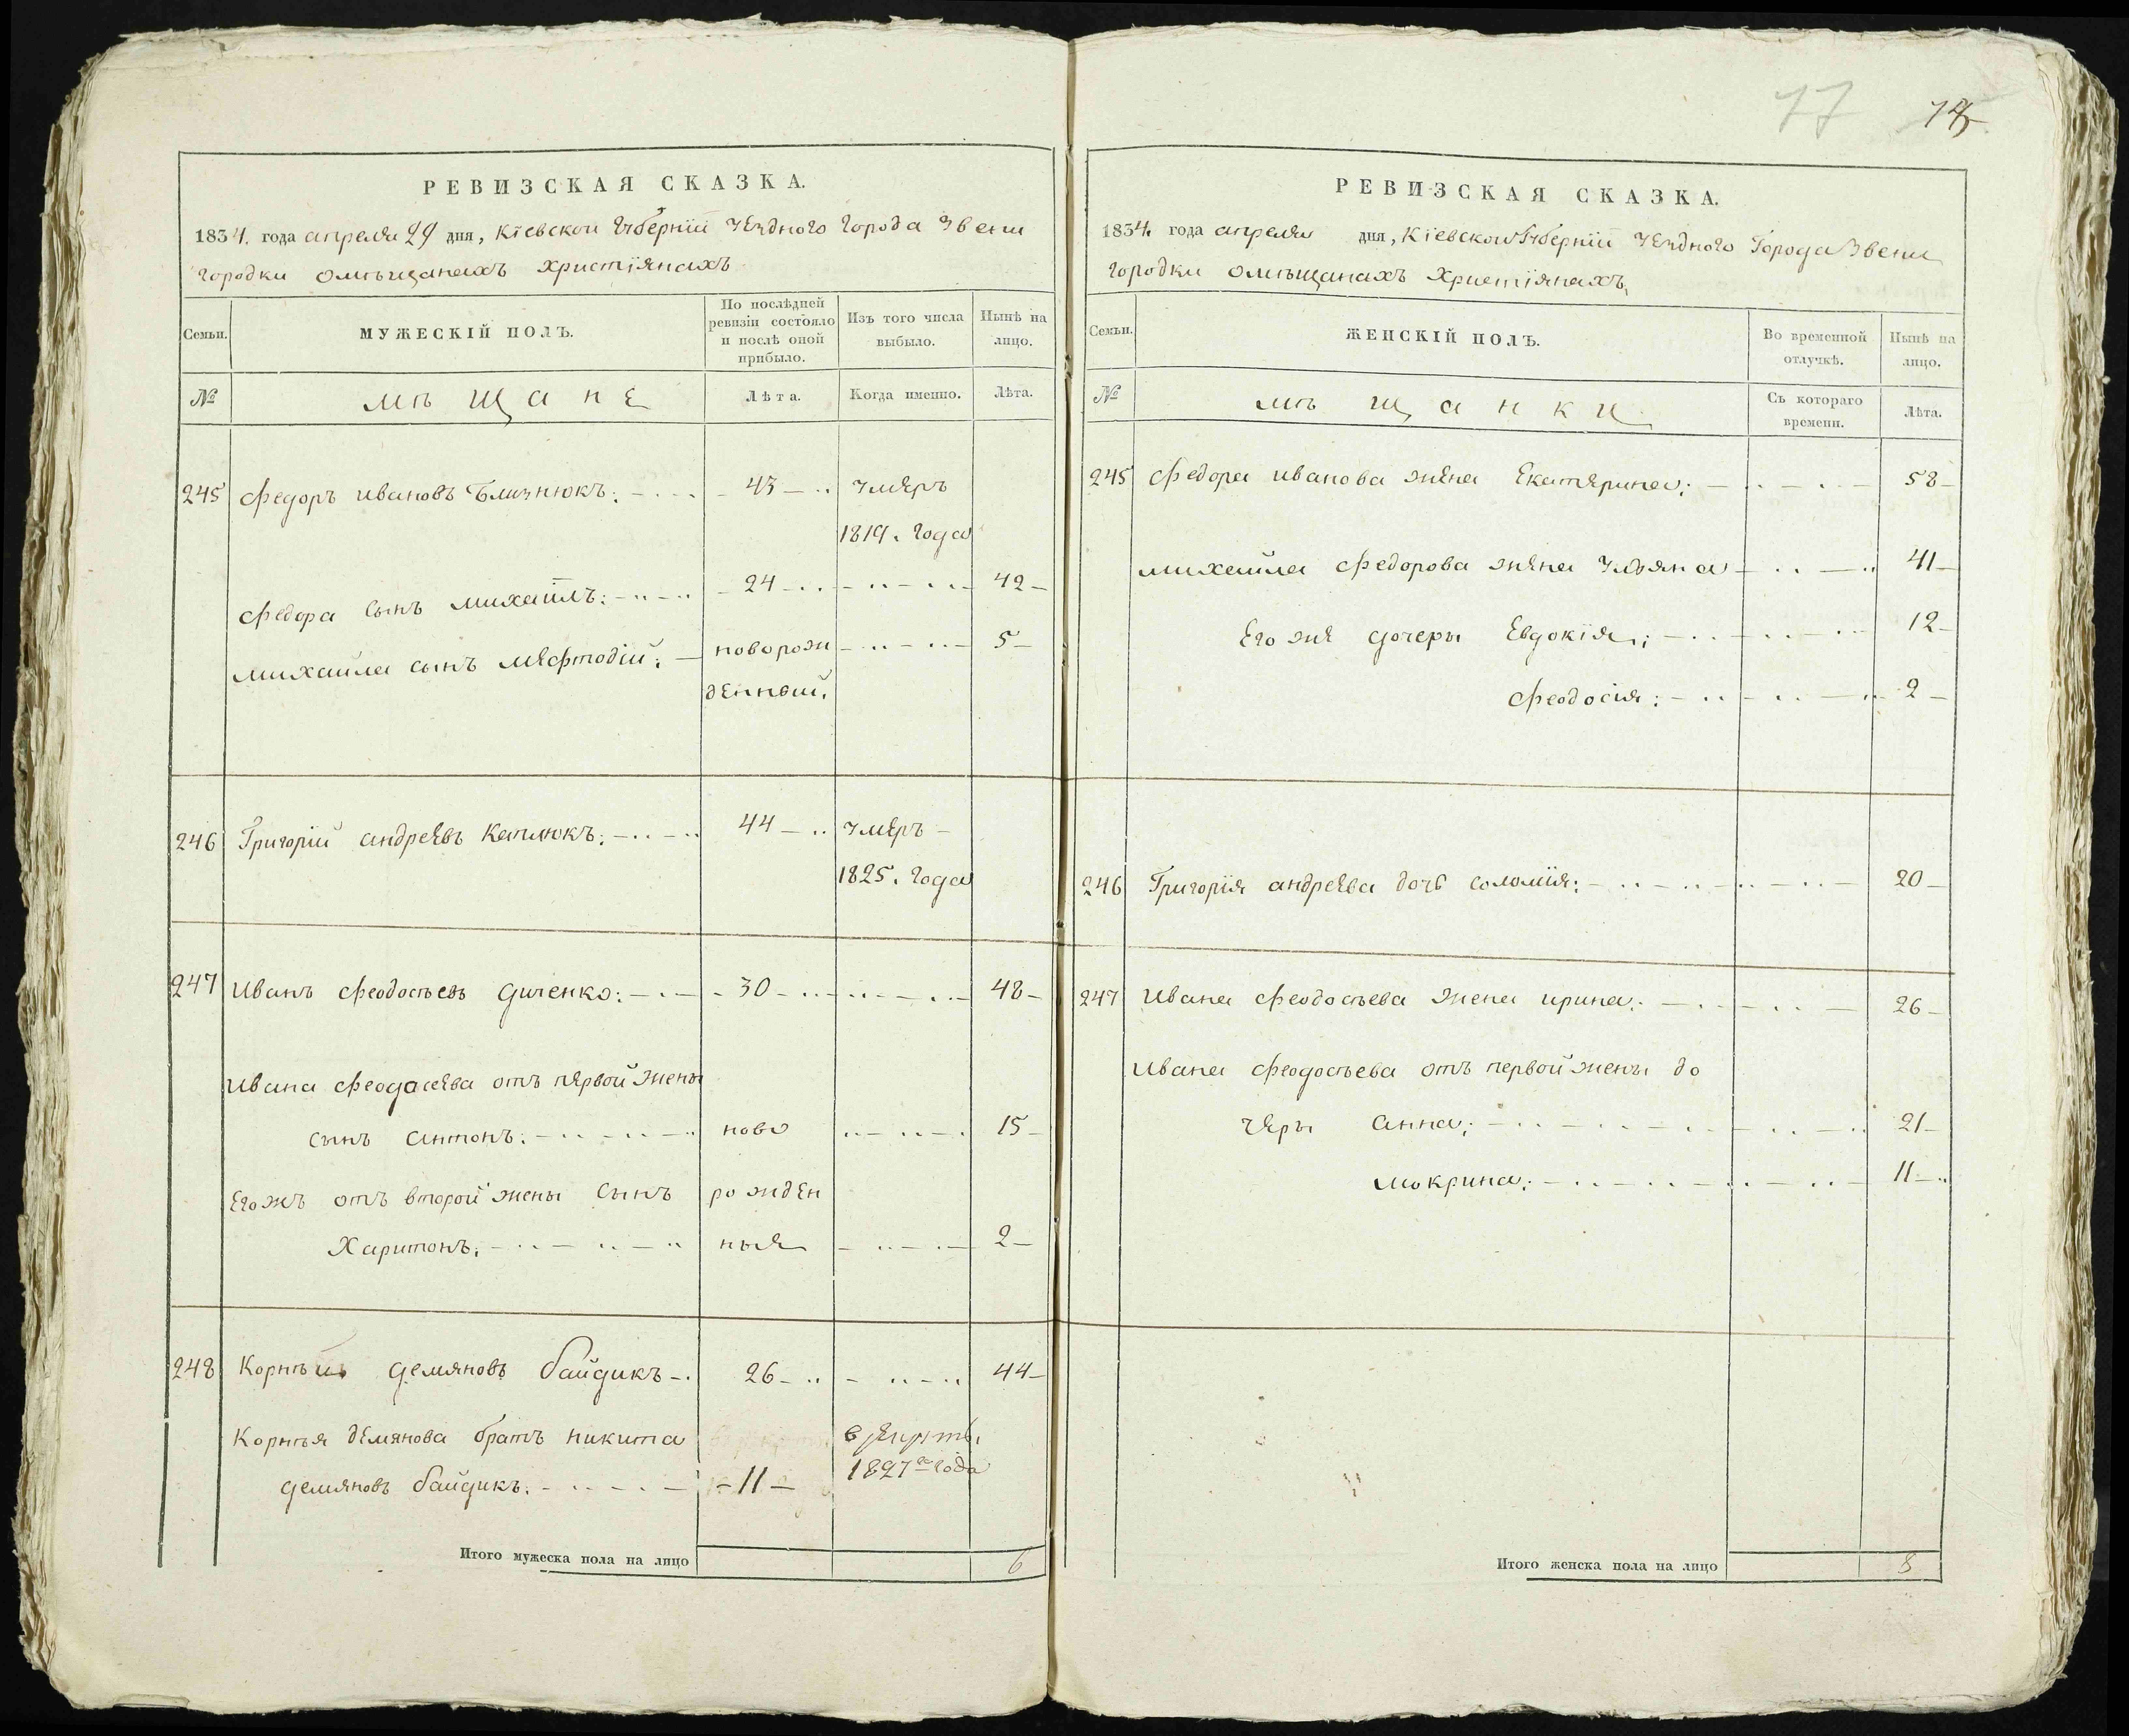 77 78
РЕВИЗСКАЯ СКАЗКА.
1834. года апреля 29 дня, Кіевской Губерніи уезднаго города Звени
городки омѣщанахъ христіянахъ
Семьи.
МУЖЕСКІЙ ПОЛЪ.
По послѣдней
ревизіи состояло
и послѣ оной
прибыло.
Изъ того числа
выбыло.
Нынѣ на
лицо.
№
мѣщане
Лѣта.
Когда именно.
Лѣта.
245 Федоръ ивановъ Близнюкъ: 43 умеръ
1819. года
Федора сынъ михайлъ: 24 42
михайла сынъ мефтодій: новорож 5
денный.
246 Григорій андреевъ Каплюкъ: 44 умеръ
1825. года
247 Иванъ Феодосьевъ диченко: 30 48
Ивана Феодосева отъ первой жены
сынъ антонъ: ново 15
Егожъ отъ второй жены сынъ рожден
Харитонъ: ныя 2
248 Корнѣй демяновъ байдикъ 26 44
Корнѣя демянова братъ никита
демяновъ байдикъ. 11 1827го года
Итого мужеска пола на лицо 6
РЕВИЗСКАЯ СКАЗКА.
1834 года апреля дня, Кіевской Губерніи уезднаго Города Звени
городки омѣщанахъ Христіянахъ,
Семьи.
ЖЕНСКІЙ ПОЛЪ.
Во временной
отлучкѣ.
Нынѣ на
лицо.
№
мѣщанки
Съ котораго
времени.
Лѣта.
245 Федора иванова жена Екатерина: 58
михайла Федорова жена Ульяна 41
Его же дочеры Евдокія: 12
Феодосія: 2
246 Григорія андреева дочь соломія: 20
247 Ивана Феодосьева жена ирина: 26
Ивана Феодосьева отъ первой жены до
черы анна: 21
мокрина: 11
Итого женска пола на лицо 8